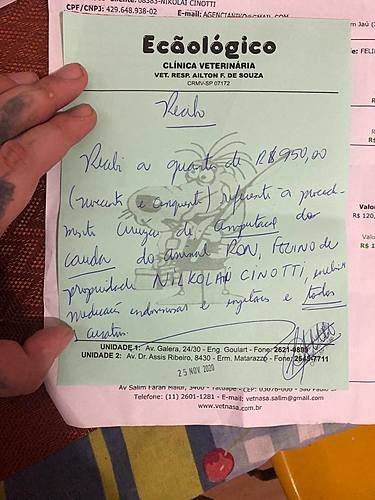 CPF/CNPJ: 429.648.938-02
NIKOLAI CINOTTI
E-mail:
Ecãológico
CLÍNICA VETERINÁRIA
VET. RESP. AILTON F. DE SOUZA
CRMV-SP 07172
Recibo
Recibi a quantia de R$ 950,00
(novecentos e cinquenta) referente a procedi-
mento cirurgico de amputacao da
cauda do animal RON, FELINO de
propriedade NILKOLAU CINOTTI,
medicação e injetaveis e todos
UNIDADE 1: Av. Galera, 24/30 - Eng. Goulart - Fone: 2621-0805
UNIDADE 2: Av. Dr. Assis Ribeiro, 8430 - Erm. Matarazzo - Fone: 2545-7711
25 NOV 2020
Av Salim Farah Maluf, 3400 - Tatuapé - CEP: 03076-000 - São Paulo
Telefone: (11) 2601-1281 - E-mail: vetnasa.salim@gmail.com
www.vetnasa.com.br
Valor
R$ 120,
R$ 1